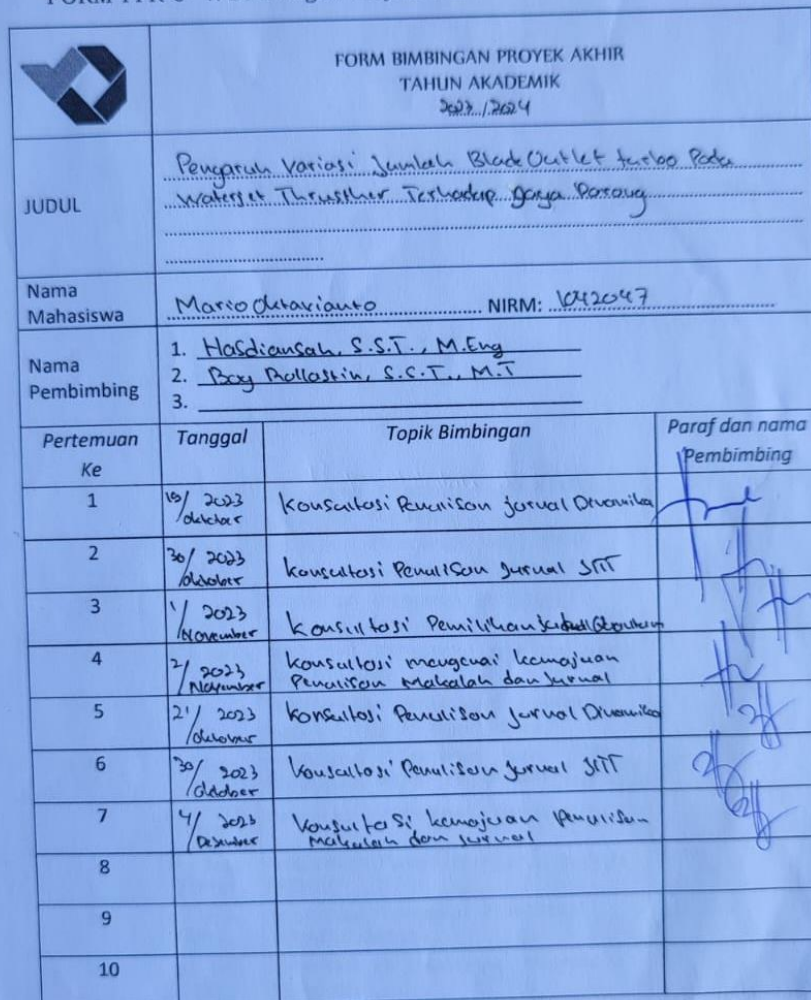 FORM BIMBINGAN PROYEK AKHIR
TAHUN AKADEMIK
2023/2024
JUDUL
Pengaruh Variasi Jumlah Blade Outlet turbo Pada
Waterjet Thrussher Terhadap gaya Dorong
Nama Mahasiswa
Mario Oktavianto NIRM: 1042047
Nama Pembimbing
1. Hasdiansah, S.S.T., M.Eng
2. Boy Rollastin, S.S.T., M.T
3.
Pertemuan Ke Tanggal Topik Bimbingan Paraf dan nama Pembimbing
1 19/ 2023 /oktober Konsultasi Penulisan jurnal Dinamika
2 30/ 2023 /oktober Konsultasi Penulisan Jurnal JITT
3 1/ 2023 /November Konsultasi Pemilihan
4 2/ 2023 /November Konsultasi mengenai kemajuan
Penulisan Makalah dan Jurnal
5 21/ 2023 /oktober Konsultasi Penulisan Jurnal Dinamika
6 30/ 2023 /Oktober Konsultasi Penulisan Jurnal JITT
7 4/ 2023 /Desember Konsultasi kemajuan Penulisan
Makalah dan jurnal
8
9
10